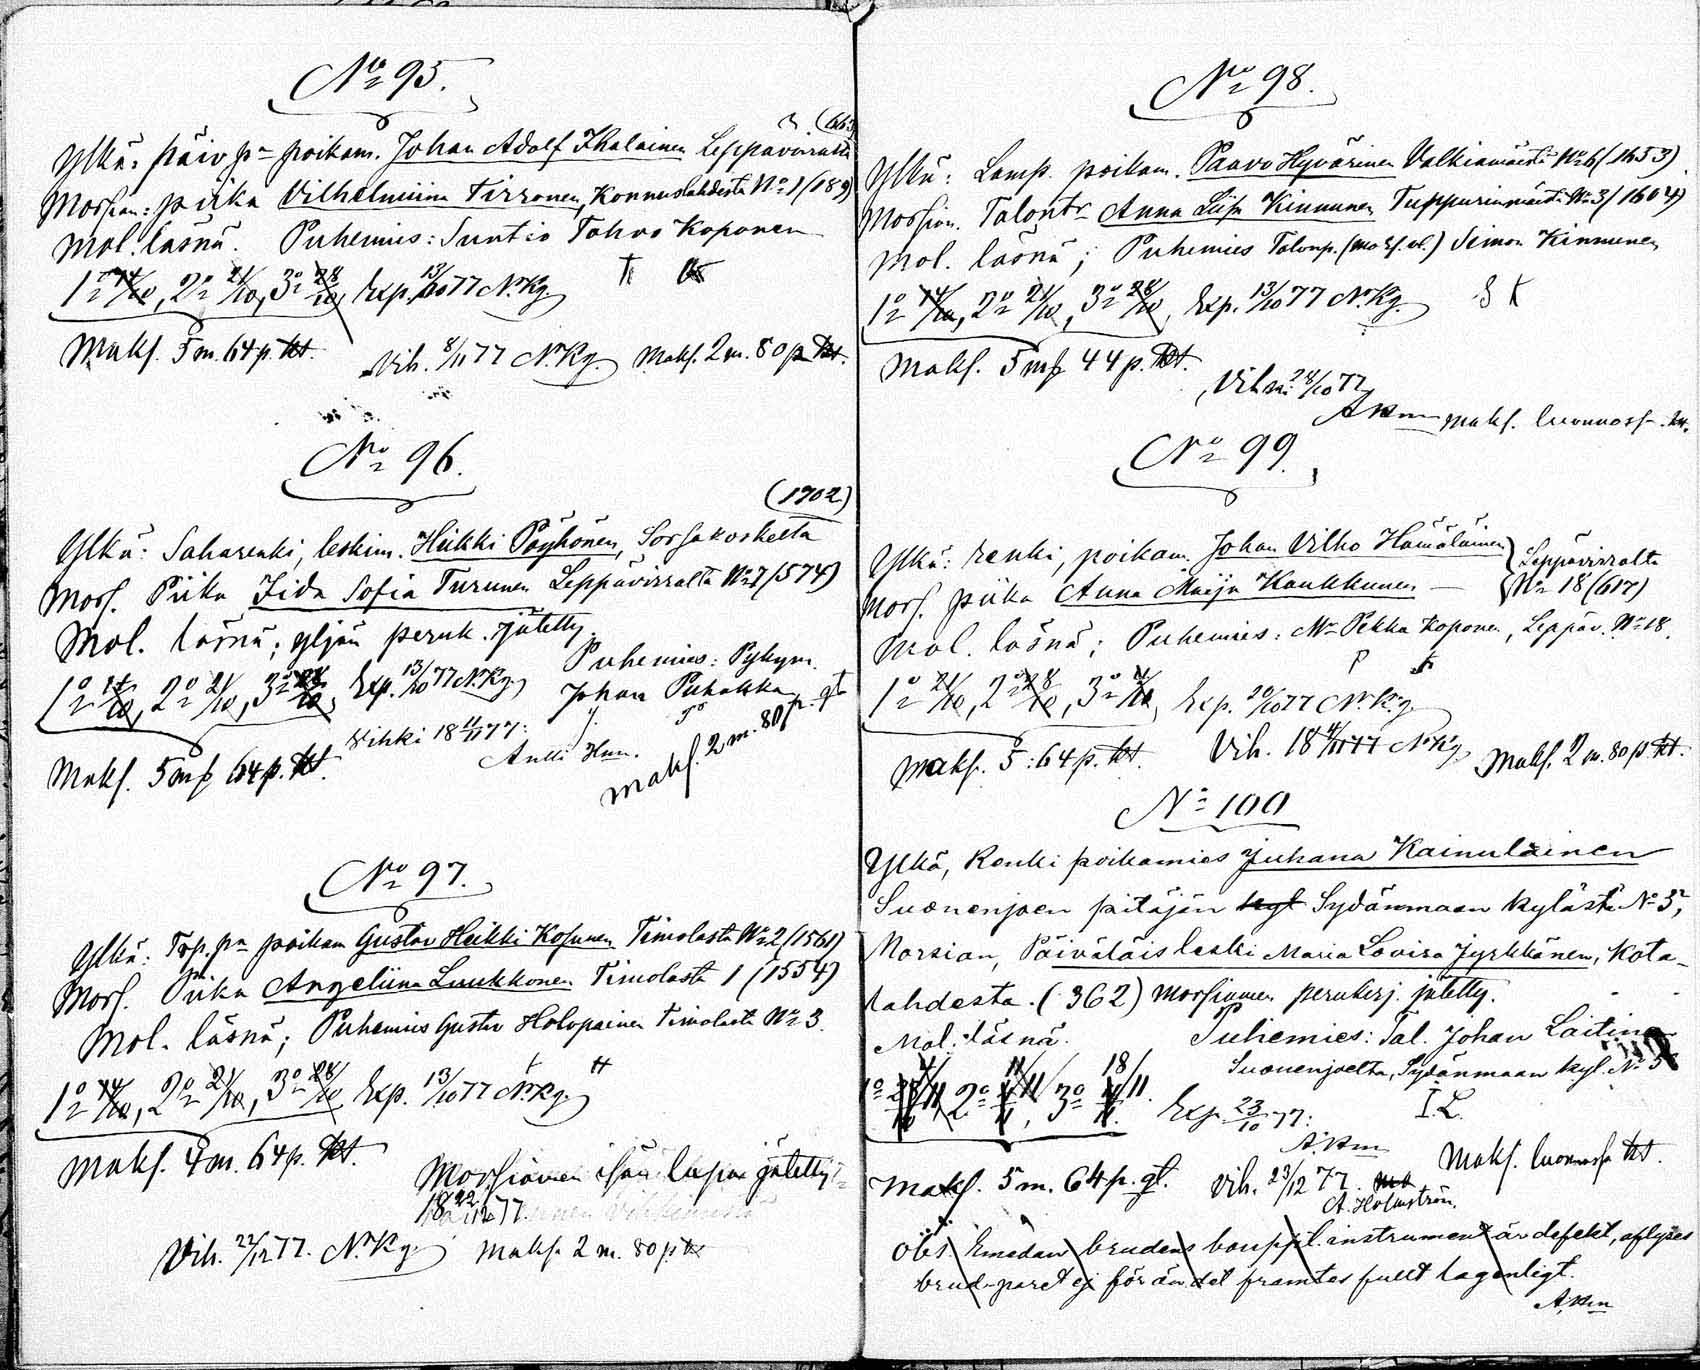 No 95.
(663)
Ylkä: päiv pa poikam. Johan Adolf Ihalainen Leppävirralta
Morsian: piika Vilhelmiina Tirronen, Konnuslahdesta No 1 (189)
Mol. läsnä. Puhemies: Suntio Tahvo Koponen
1o 14/10, 2o 21/10, 3o 28/10, Exp. 13/10 77 N. Kg.
Maks. 5 m. 64 p. kt. Vih. 8/11 77 N. Kg. Maks. 2 m. 80 p. kt.
No 96.
(1702)
Ylkä: Saharenki, leskim. Heikki Pöyhönen, Sorsakoskelta
Mors. Piika Iida Sofia Turunen Leppävirralta No 7 (574)
Mol. läsnä; yljän peruk. jätetty
Puhemies: Pykym.
1o 14/10, 2o 21/10, 3o 28/10, Exp. 13/10 77 N. Kg. Johan Puhakka
Vihki 18 11/11 77:
Antti Hmn.
Maks. 5 mk 64 p. kt. maks. 2 m. 80 p. gt
No 97.
Ylkä: Trp. pa poikam Gustav Heikki Kosunen Timolasta No 2 (1561)
Mors. Piika Angeliina Luukkonen Timolasta 1 (1554)
Mol. läsnä; Puhemies Gustav Holopainen Timolasta No 3.
1o 14/10, 2o 21/10, 3o 28/10 Exp. 13/10 77 N. Kg.
Maks. 4 m. 64 p. kt. Morsiamen isän lupa jätetty
18 22/12 77.
Vih. 22/12 77. N. Kg. maks. 2 m. 80 p. kt
No 98.
Ylkä: Lamp. poikam. Paavo Hyvärinen Valkiamäestä No 6 (1653)
Morsian. Talontr Anna Liisa Kinnunen Tuppurinmäestä No 3 (1604)
Mol. läsnä; Puhemies Talonp. (mors. vl.) Simon Kinnunen
1o 14/10, 2o 21/10, 3o 28/10, Exp. 13/10 77 N. Kg. S K
Maks. 5 mk 44 p. kt.
Vih. 28/10 77
A Hmn maks. luonnossa. kt.
No 99.
Ylkä: renki, poikam. Johan Vilho Hämäläinen } Leppävirralta
Mors. piika Anna Maija Kaukkunen — No 18 (617)
Mol. läsnä; Puhemies: Mr Pekka Koponen, Leppäv. No 18.
1o 21/10, 2o 28/10, 3o 4/11, Exp. 20/10 77 N. Kg.
Maks. 5: 64 p. kt. Vih. 18 4/11 77 N. Kg. Maks. 2 m. 80 p. kt.
No 100
Ylkä, Renki poikamies Juhana Kainulainen
Suonenjoen pitäjän kyl Sydänmaan kylästä No 3,
Morsian, Päiväläisleski Maria Lovisa Jyrkkänen, Kota-
lahdesta. (362) Morsiamen perukirj. jätetty.
Mol. läsnä. Puhemies: Tal. Johan Laitinen
Suonenjoelta, Sydänmaan kyl. No 3
1o 4/11, 2o 11/11, 3o 18/11. Exp 23/10 77: I. L.
A. Hmn
Maks. 5 m. 64 p. gt. Vih. 23/12 77. Maks. luonnossa kt.
A. Holmström.
Obs. Emedan brudens bouppt. instrument är defekt, aflyses
brud-paret ej förän det framtes fullt lagenligt.
A. Hmn